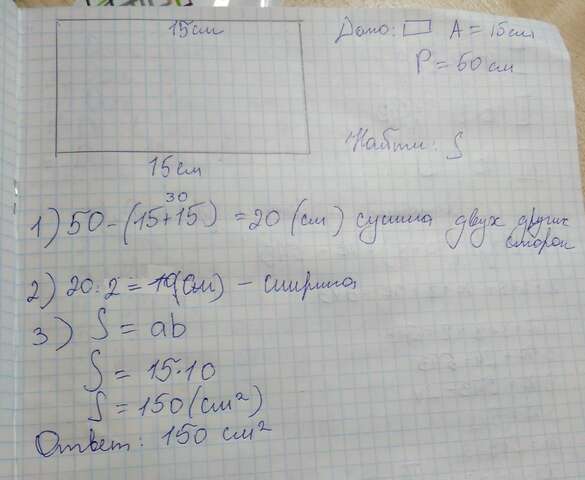 15см
Дано: A = 15см
P = 50 см
Найти: S
15см
30
1) 50 - (15+15) = 20 (см) сумма двух других
сторон
2) 20:2 = 10(см) - ширина
3) S = ab
S = 15·10
S = 150 (см²)
Ответ: 150 см²